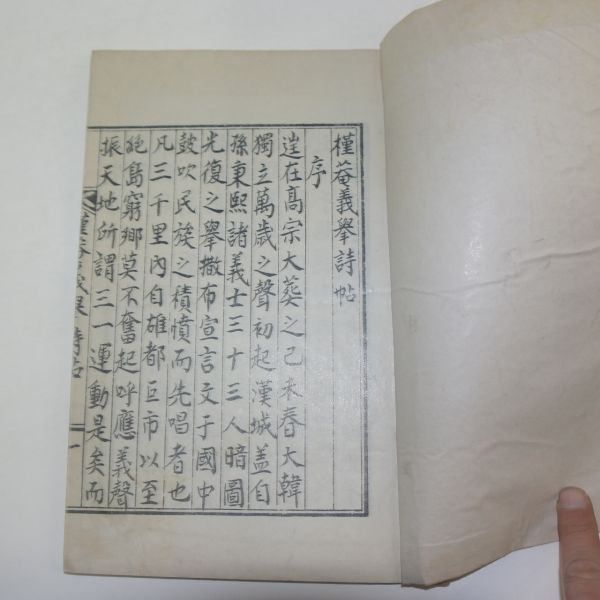 槿菴義擧詩帖
序
逞在高宗大葬之己未春大韓
獨立萬歲之聲初起漢城盖自
孫秉熙諸義士三十三人暗圖
光復之擧撒布宣言文于國中
鼓吹民族之積憤而先唱者也
凡三千里內自雄都巨市以至
絶島窮鄕莫不奮起呼應義聲
振天地所謂三一運動是矣而
槿菴義擧詩帖
一